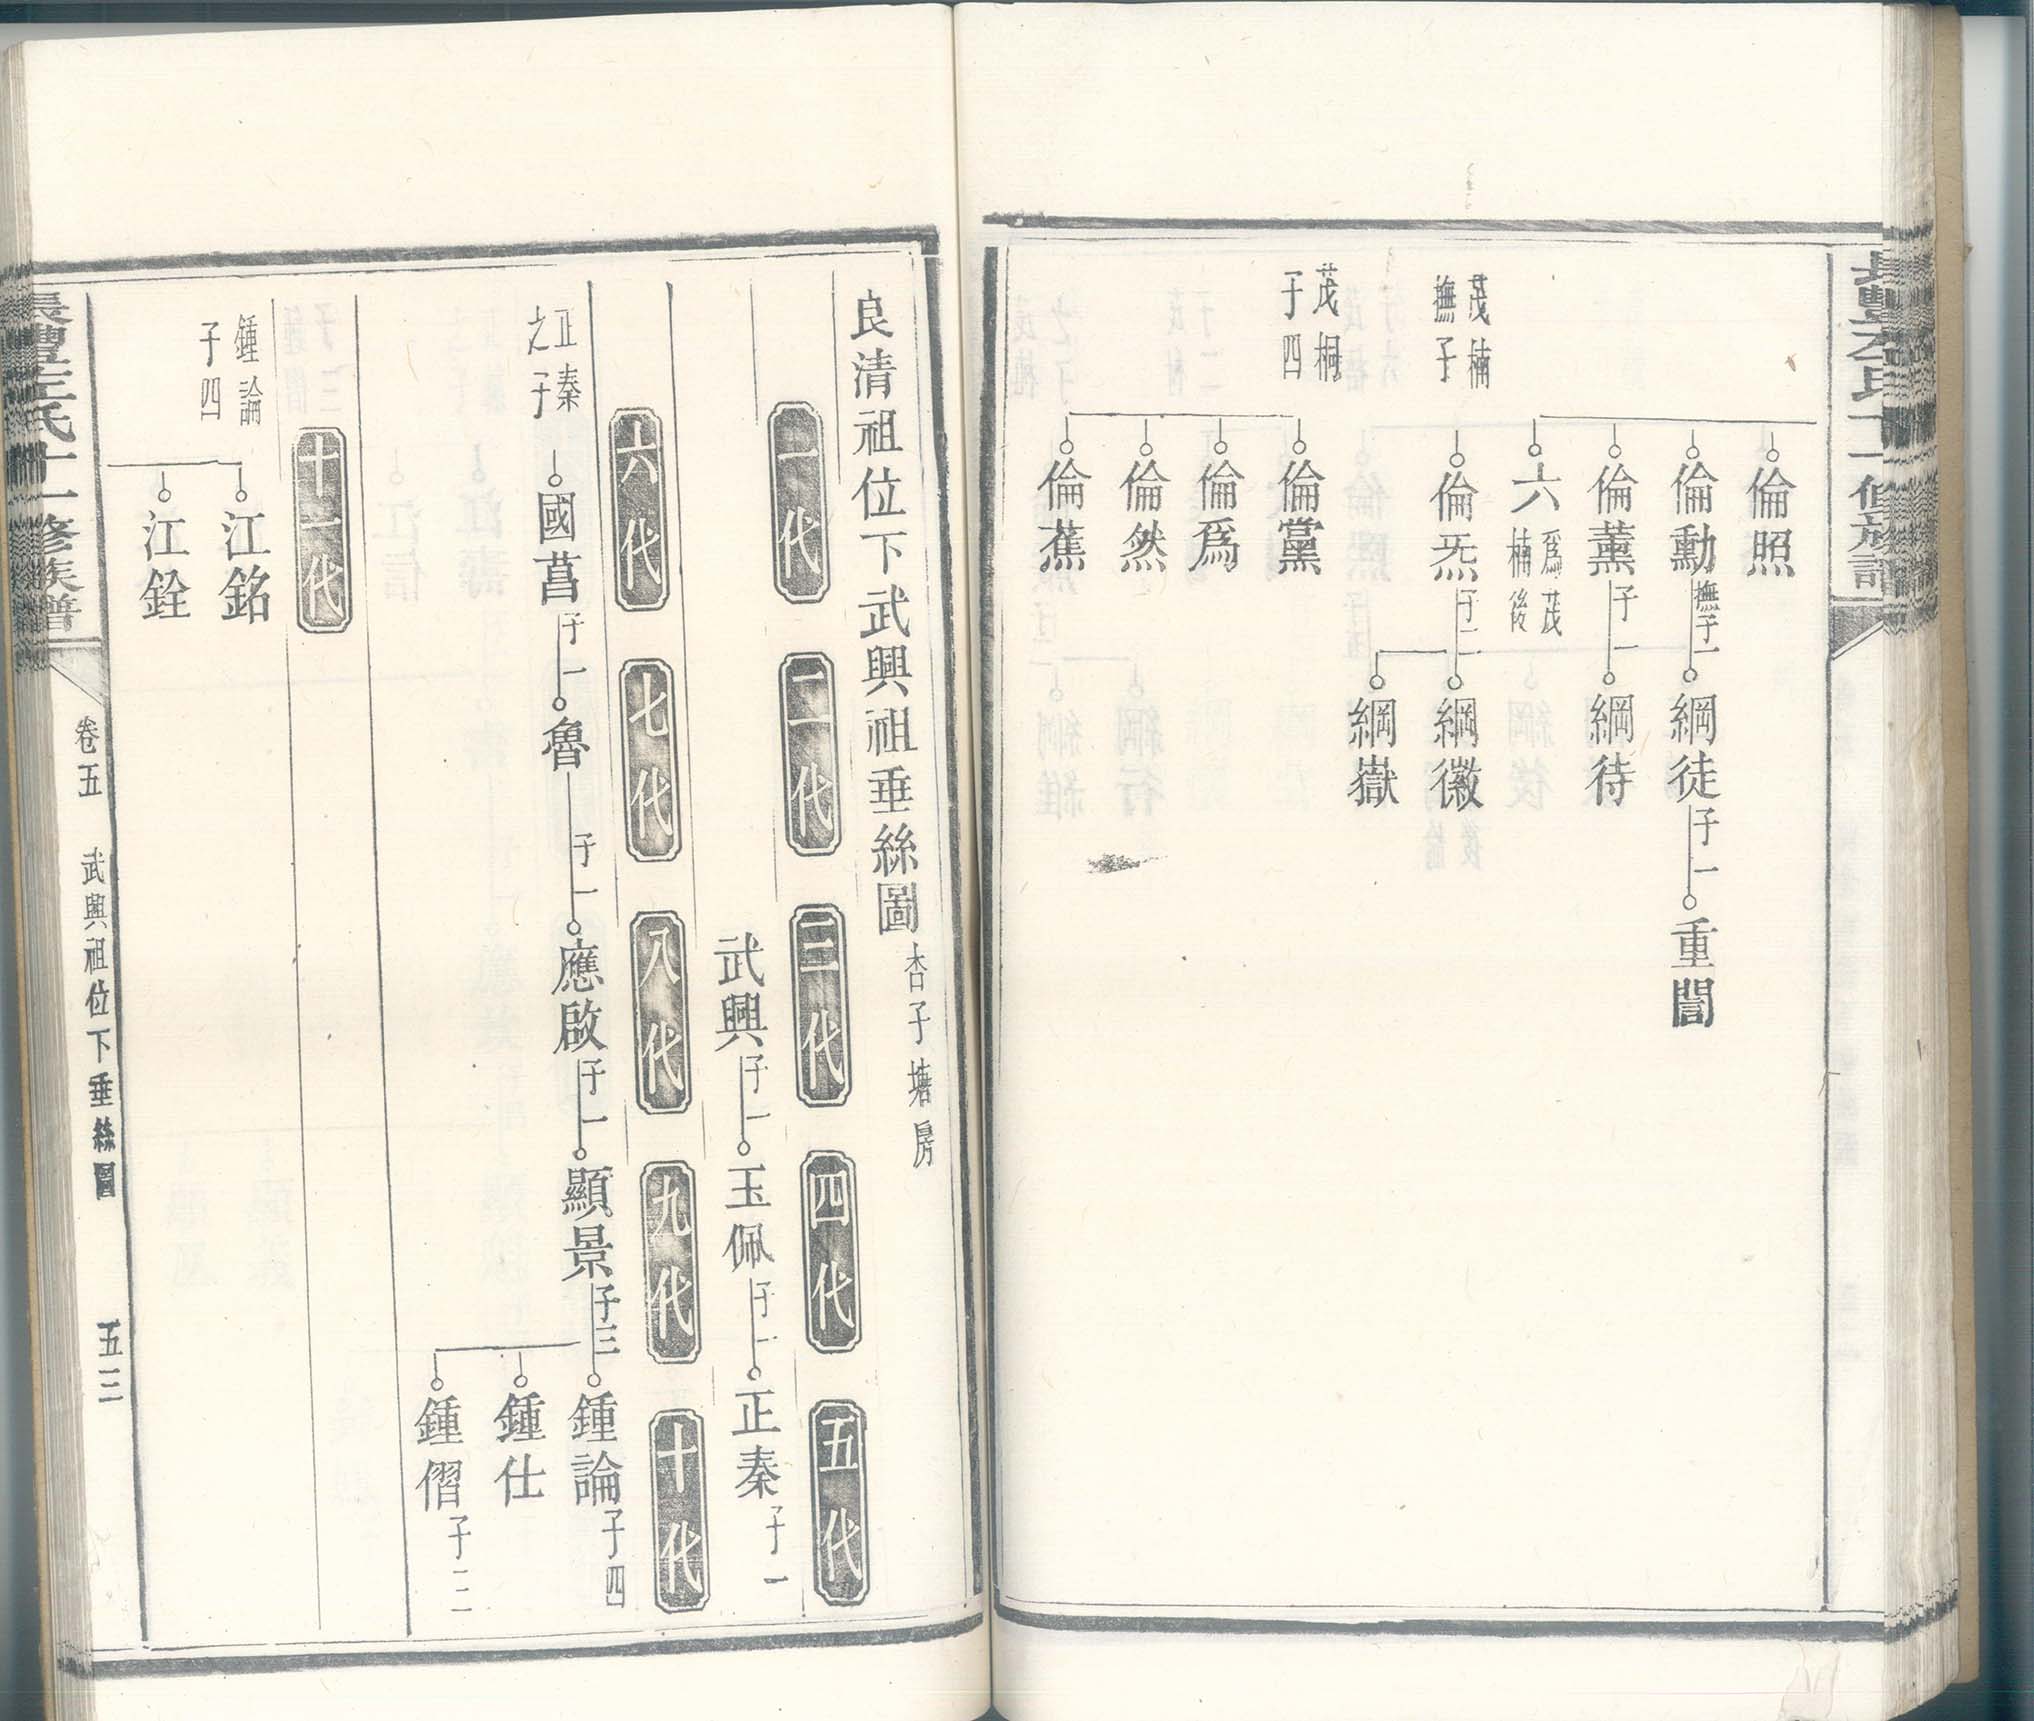 倫照
倫勳 撫子一 綱徒 子一 重誾
倫薰 子一 綱待
六 爲茂楠後
茂楠撫子
倫炁 子二 綱徽
綱嶽
茂桐子四
倫黨
倫爲
倫然
倫蕉
良清祖位下武興祖垂絲圖 杏子塘房
一代 二代 三代 四代 五代
武興 子一 玉佩 子一 正秦 子一
六代 七代 八代 九代 十代
正秦之子
國菖 子一 魯 子一 應啟 子一 顯景 子三 鍾論 子四
鍾仕
鍾僧 子二
十一代
鍾論子四
江銘
江銓
氏十一修族譜
卷五 武興祖位下垂絲圖 五三